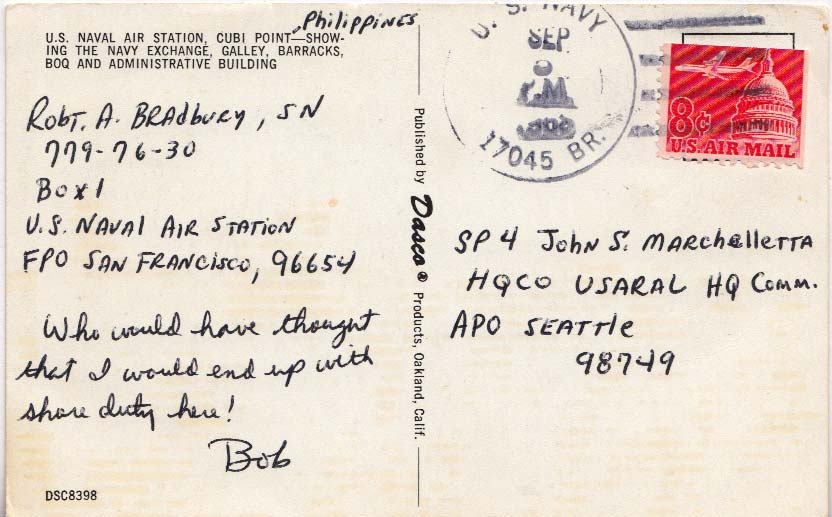 Philippines
U.S. NAVAL AIR STATION, CUBI POINT—SHOW-
ING THE NAVY EXCHANGE, GALLEY, BARRACKS,
BOQ AND ADMINISTRATIVE BUILDING
Robt. A. Bradbury, SN
779-76-30
Box 1
U.S. Naval Air Station
FPO San Francisco, 96654
Who would have thought
that I would end up with
shore duty here!
Bob
DSC8398
Published by Dasco® Products, Oakland, Calif.
U. S. NAVY
SEP
P.M.
17045 BR.
8c
U.S. AIR MAIL
SP 4 John S. Marchelletta
HQCO USARAL HQ Comm.
APO Seattle
98749